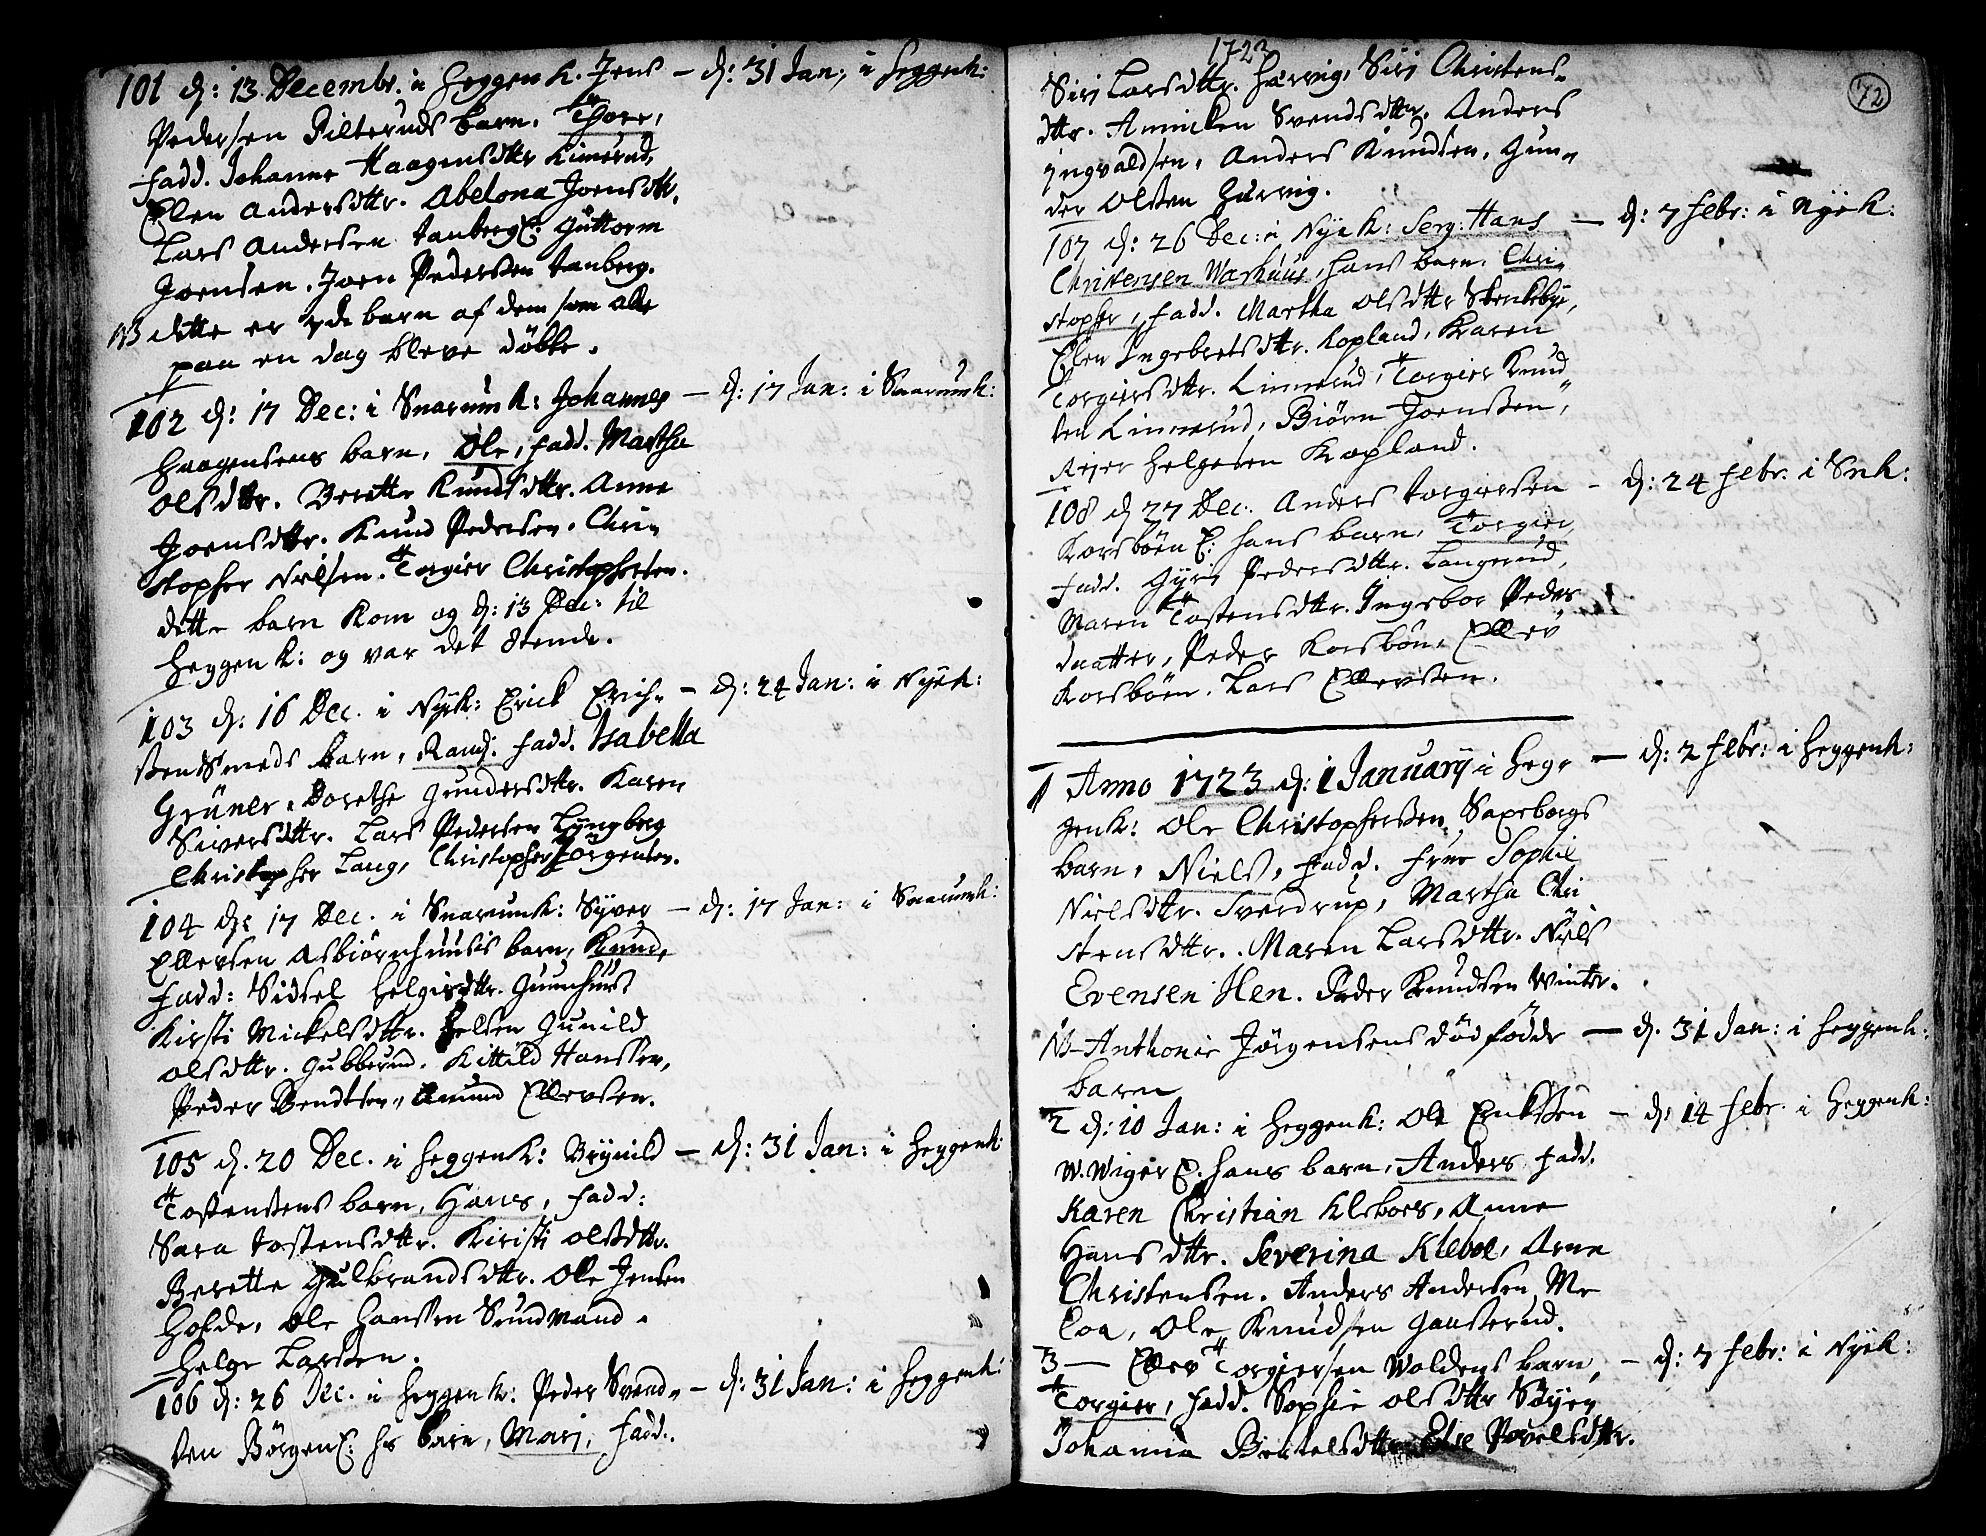 101 d: 13 Decembr. i Heggen K. Jens — d: 31 Jan: i Heggenk:
Pedersen Pilteruds barn. Thore,
fadd. Johanne Haagensdttr Kimerud,
Elen Andersdttr. Abelona Joensdttr.
Lars Andersen Tanberg E: Guttorm
Joensen. Joen Pedersen Tanberg.
NB dette er 7de barn af dem som alle
paa en dag bleve döbte.
102 d: 17 Dec: i Snarum K: Johannes — d: 17 Jan: i Snarumk:
Haagensens barn, Ole, fadd. Martha
Olsdttr. Berette Knudsdttr. Anne
Joensdttr. Knud Pedersen. Chri-
stopher Nielsen. Torgier Christophersen.
dette barn kom og d: 13 Dec: til
Heggen K: og var det 8tende.
103 d. 16 Dec. i Nyek: Erick Erich- — d: 24 Jan: i Nyek:
sen Smeds barn, Randj. fadd. Isabella
Grüner. Dorethe Gundersdttr. Karen
Siversdttr. Lars Pedersen Lyngberg
Christopher Lang, Christopher Jörgensen.
104 d: 17 Dec. i Snarumk: Syver — d: 17 Jan: i Snarumk:
Ellevsen Asbiörnhuusis barn, Knud,
fadd: Sidsel Helgisdttr. Guunhuus
Kirsti Mickelsdttr. Helsen Gunild
Olsdttr. Gubberud. Kittild Hanssen,
Peder Bendtsen, Amund Ellevsen.
105 d. 20 Dec. i Heggen K: Brynild — d: 31 Jan: i Heggenk
Tostensens barn, Hans, fadd:
Sara Tostensdttr. Kirsti Olsdttr.
Berette Gulbrandsdttr. Ole Jensen
Hofde, Ole Hanssen Sundmand.
Helge Larssen.
106 d: 26 Dec. i Heggen K: Peder Svend- — d: 31 Jan: i Heggenk:
sen Börgen E: hs barn, Marj, fadd.
1723
72
Siri Larsdttr. Hærvig, Siri Christens-
dttr. Annicken Svendsdttr. Anders
Yngvaldsen, Anders Knudsen, Gun-
der Olsen Hærvig.
107 d: 26 Dec: i Nye K: Serg: Hans — d: 7 Febr: i Nyek:
Christensen Warhuus, hans barn. Chri-
stopher, fadd. Martha Olsdttr Skenksbye,
Elen Ingebretsdttr. Kopland, Karen
Torgiersdttr. Linnerud, Torgier Knud-
sen Linnerud, Biörn Joenssen,
Reier Helgesen Kopland.
108 d 27 Dec. Anders Torgiersen — d: 24 Febr. i Snk:
Korsböen E: hans barn, Torgier,
fadd. Gyri Pedersdttr. Langerud,
Maren Tostensdttr. Ingebor Peders
daatter, Peder Korsböen, Ellev
Korsböen. Lars Ellevssen.
1 Anno 1723 d: 1 January i Heg- — d: 2 Febr: i Heggenk:
genk: Ole Christophersen Saxeborgs
barn, Niels, fadd. Frue Sophie
Nielsdttr. Sverdrup, Martha Chri
stensdttr. Maren Larsdttr. Niels
Evensen Hen. Peder Knudsen Winter.
NB Anthonie Jörgensens dödfödde — d. 31 Jan: i Heggenk:
barn
2 d: 10 Jan: i Heggenk: Ole Erikssen — d: 14 Febr. i Heggenk:
W. Wiger E. hans barn, Anders fadd.
Karen Christian Kleboes, Anne
Hansdttr. Severina Kleboe, Arne
Christensen. Anders Andersen Mo
Eoa, Ole Knudsen Gausterud.
3 — Ellev Torgiersen Woldens barn, — d: 7 Febr: i Nyek:
Torgier, fadd. Sophie Olsdttr Söyen
Johanna Bertelsdttr Else Povelsdttr.